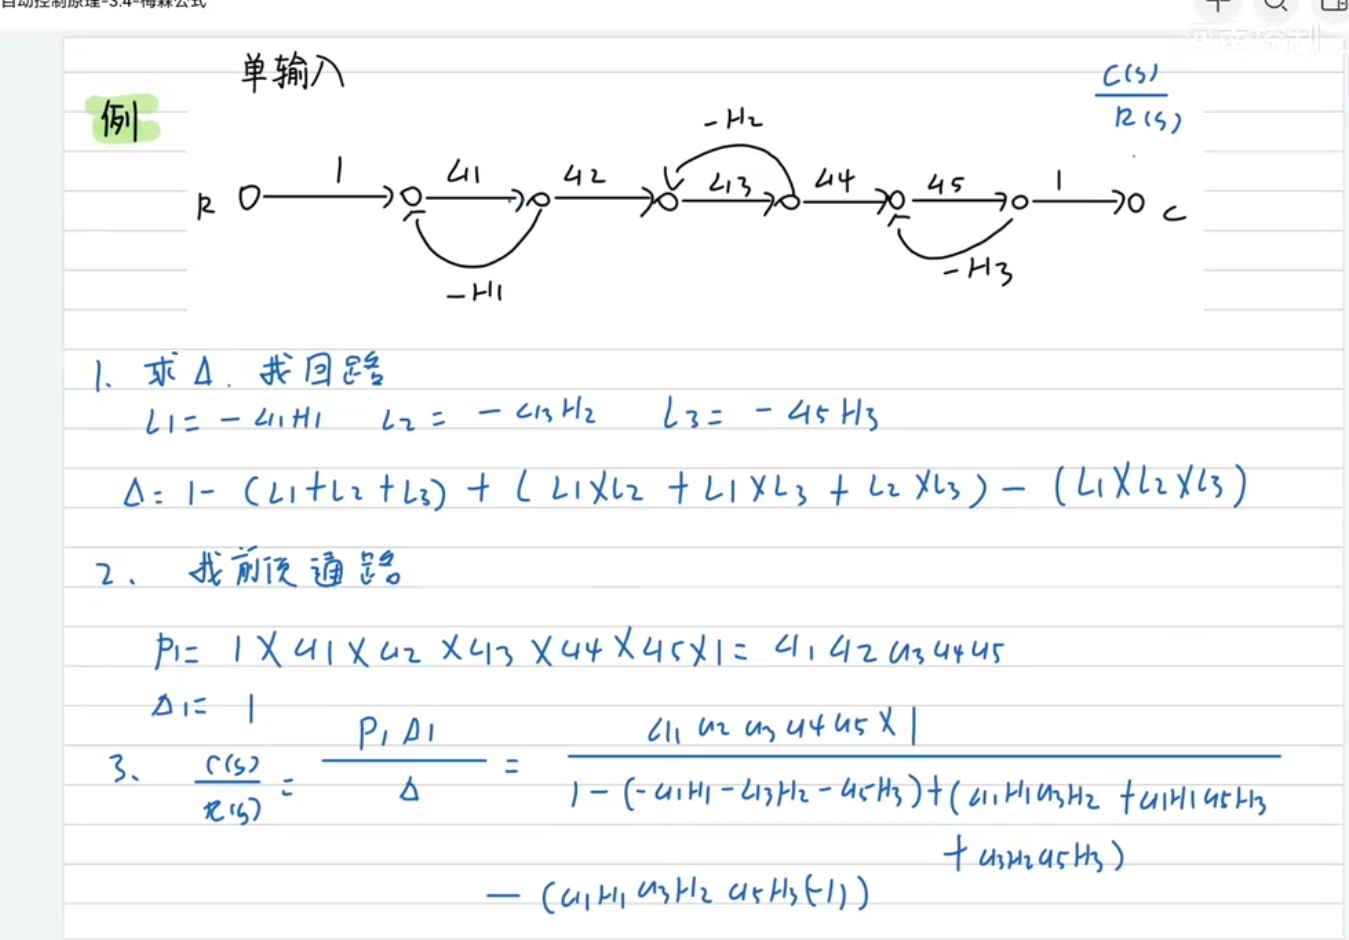 自动控制原理-3.4-梅森公式
单输入
C(s)
R(s)
例
-H2
1 G1 G2 G3 G4 G5 1
R C
-H1
-H3
1. 求Δ. 找回路
L1= -G1H1 L2= -G3H2 L3= -G5H3
Δ= 1- (L1+L2+L3) + (L1×L2 + L1×L3 + L2×L3) - (L1×L2×L3)
2. 找前向通路
P1= 1×G1×G2×G3×G4×G5×1= G1G2G3G4G5
Δ1= 1
3. C(s)/R(s) = P1Δ1/Δ = G1G2G3G4G5×1
1-(-G1H1-G3H2-G5H3)+(G1H1G3H2+G1H1G5H3
+G3H2G5H3)
-(G1H1G3H2G5H3(-1))